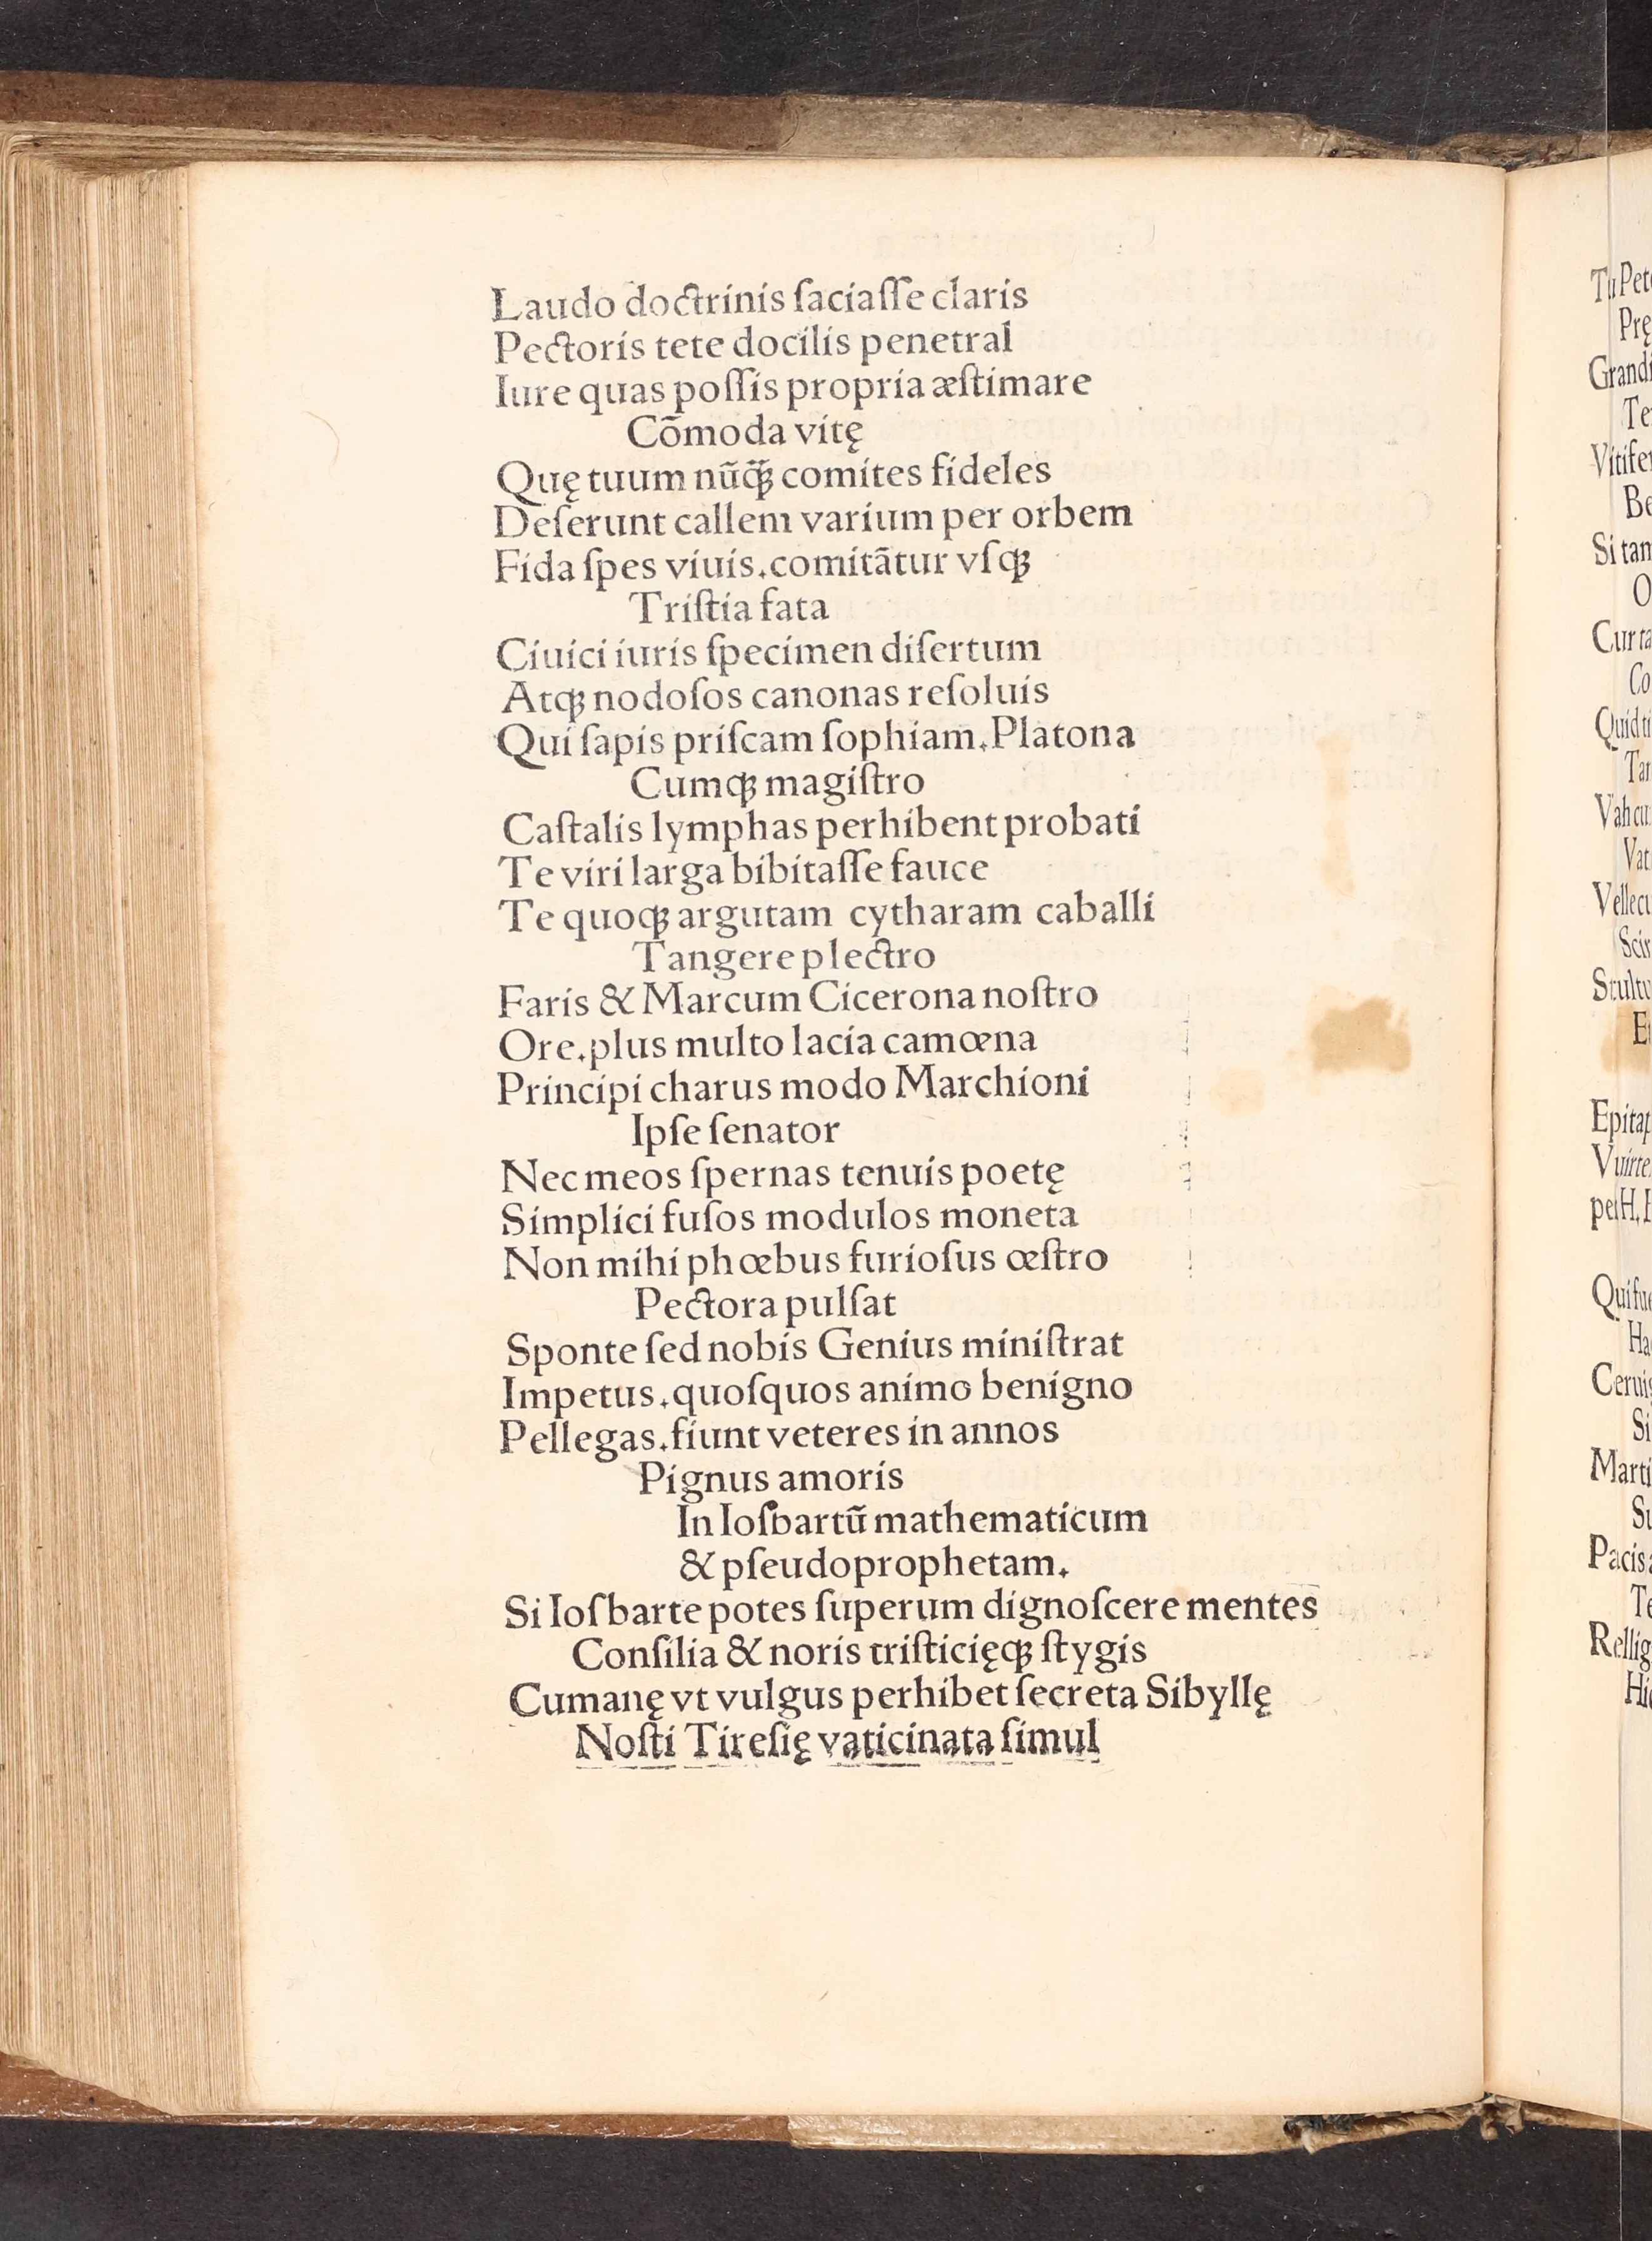 Laudo doctrinis ſaciaſſe claris
Pectoris tete docilis penetral
Iure quas poſſis propria æſtimare
Cōmoda vitę
Quę tuum nūqꝫ comites fideles
Deſerunt callem varium per orbem
Fida ſpes viuis.comitātur vſqꝫ
Triſtia fata
Ciuici iuris ſpecimen diſertum
Atqꝫ nodoſos canonas reſoluis
Qui ſapis priſcam ſophiam.Platona
Cumqꝫ magiſtro
Caſtalis lymphas perhibent probati
Te viri larga bibitaſſe fauce
Te quoqꝫ argutam cytharam caballi
Tangere plectro
Faris & Marcum Cicerona noſtro
Ore.plus multo lacia camœna
Principi charus modo Marchioni
Ipſe ſenator
Nec meos ſpernas tenuis poetę
Simplici fuſos modulos moneta
Non mihi phœbus furioſus œſtro
Pectora pulſat
Sponte ſed nobis Genius miniſtrat
Impetus.quoſquos animo benigno
Pellegas.fiunt veteres in annos
Pignus amoris
In Ioſbartū mathematicum
& pſeudoprophetam.
Si Ioſbarte potes ſuperum dignoſcere mentes
Conſilia & noris triſticięqꝫ ſtygis
Cumanę vt vulgus perhibet ſecreta Sibyllę
Noſti Tireſię vaticinata ſimul